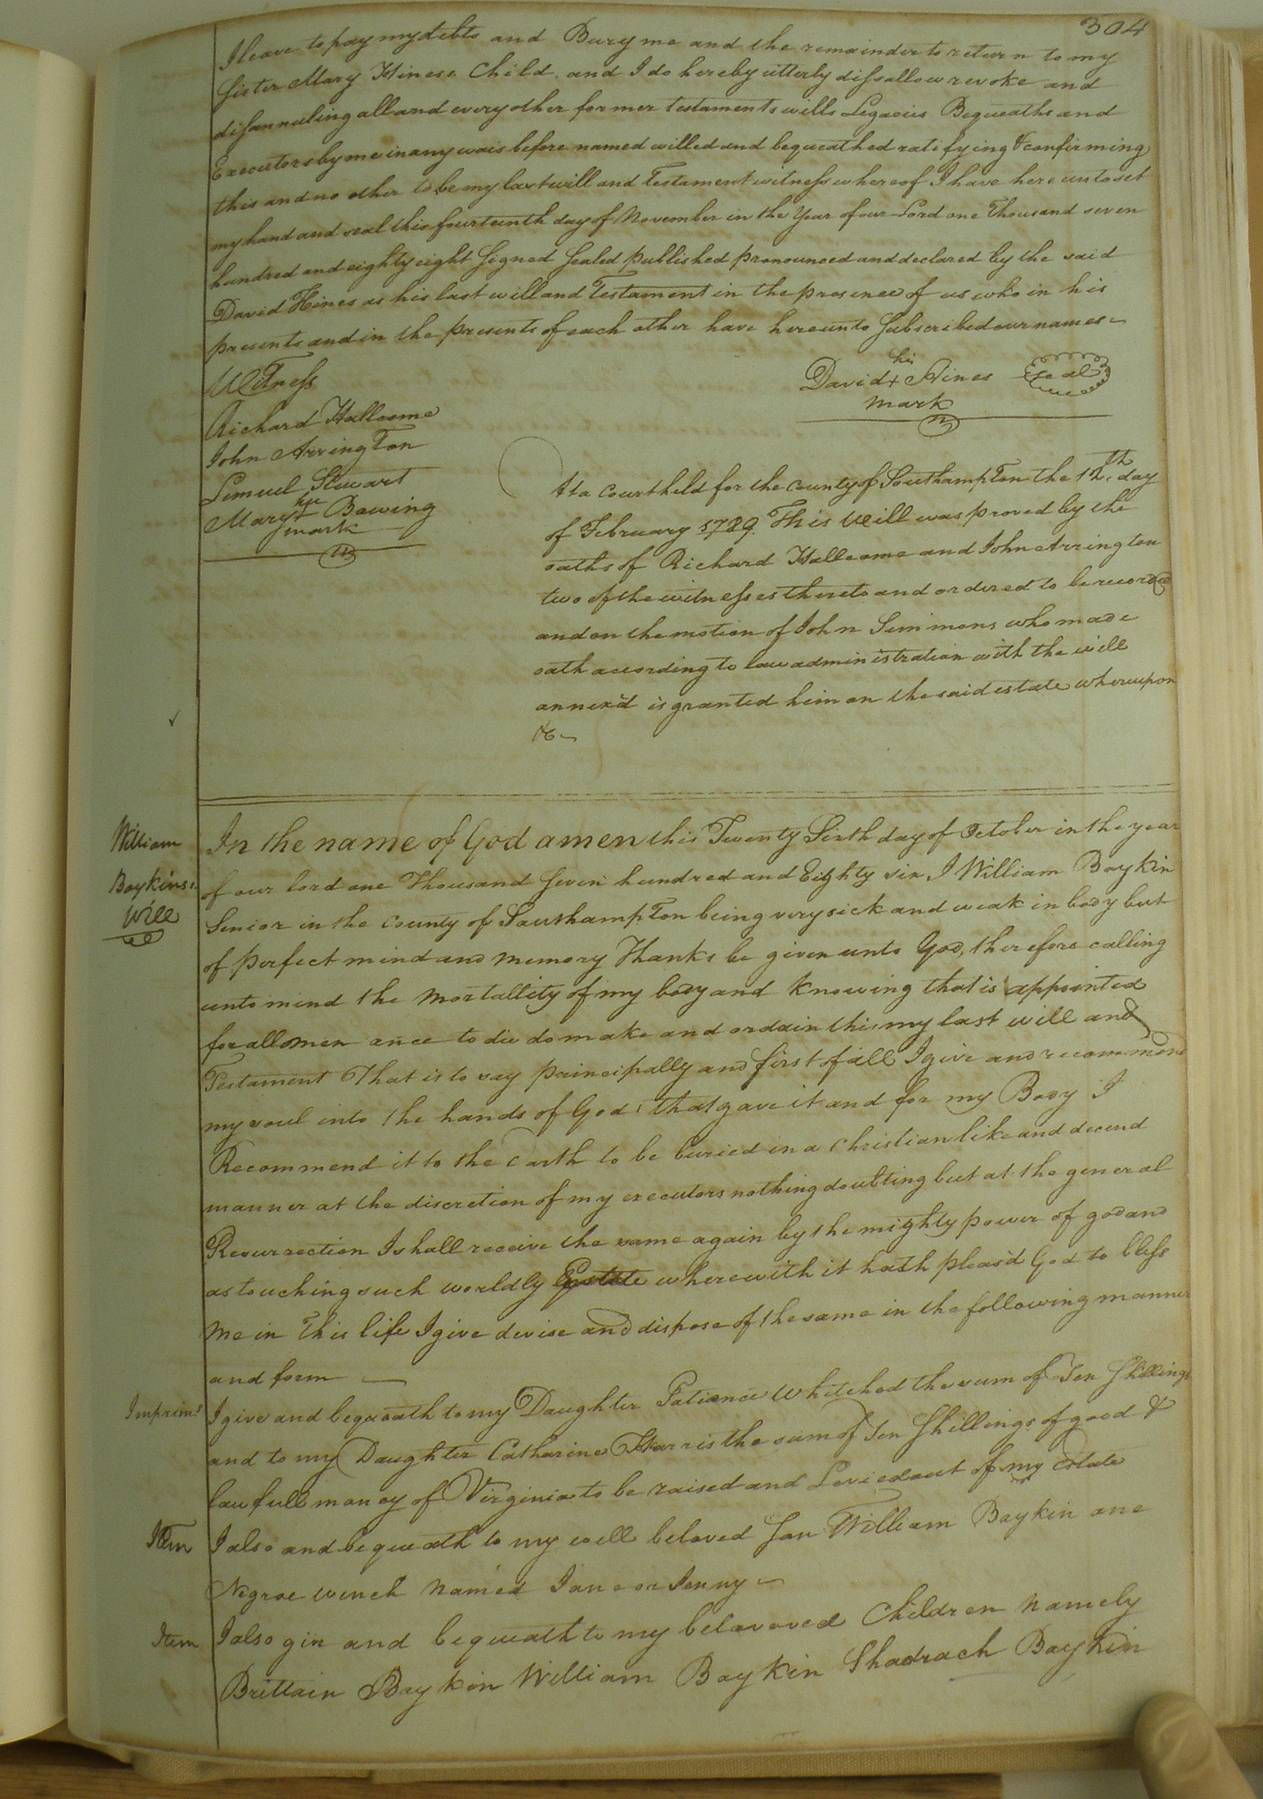 304
I leave to pay my debts and Bury me and the remainder to return to my
Sister Mary Hiness Child. and I do hereby utterly disallow revoke and
disannuling all and every other former testaments wills Legacies Bequeaths and
Executors by me in any wais before named willed and bequeathed ratifying & confirming
this and no other to be my last will and Testament witness whereof I have hereunto set
my hand and seal this fourteenth day of November in the Year of our Lord one Thousand seven
hundred and eighty eight Signed Sealed published pronounced and declared by the said
David Hines as his last will and Testament in the presence of us who in his
presents and in the presents of each other have hereunto Subscribed our names
Witness
his
David + Hines Seal
mark
Richard Hallcome
John Arrington
Lemuel Stewart
her
Mary + Bowing
mark
At a court held for the county of Southampton the 12th. day
of February 1789. This Will was proved by the
oaths of Richard Hallcome and John Arrington
two of the witnesses thereto and ordered to be recorded
and on the motion of John Simmons who made
oath according to law administration with the will
annex'd is granted him on the said estate whereupon
&c
William
Boykins's
Will
In the name of God amen this Twenty Sixth day of October in the year
of our lord one Thousand Seven hundred and Eighty six I William Boykin
Senior in the County of Southampton being very sick and weak in body but
of perfect mind and memory Thanks be given unto God, therefore calling
unto mind the Mortallity of my body and Knowing that is appointed
for all men once to die do make and ordain this my last will and
Testament That is to say principally and first of all I give and recommend
my soul into the hands of God that gave it and for my Body I
Recommend it to the Earth to be buried in a christian like and decend
manner at the discretion of my executors nothing doubting but at the general
Resurrection I shall receive the same again by the mighty power of god and
as touching such worldly Estate wherewith it hath pleas'd God to bless
Me in this life I give devise and dispose of the same in the following manner
and form
Imprims I give and bequeath to my Daughter Patience Whitehed the sum of Ten Shillings
and to my Daughter Catharine Harris the sum of Ten Shillings of good &
lawfull money of Virginia to be raised and Levied out of my estate
Item I also and bequeath to my well beloved Son William Boykin one
Negroe wench named Jane or Jenny
Item I also giv and bequeath to my belovoved Children namely
Brittain Boykin William Boykin Shadrach Boykin